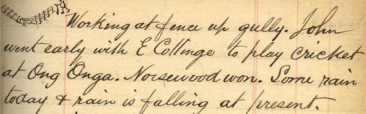 Working at fence up gully. John
went early with E Collinge to play cricket
at Ong Onga. Norsewood won. Some rain
today & rain is falling at present.